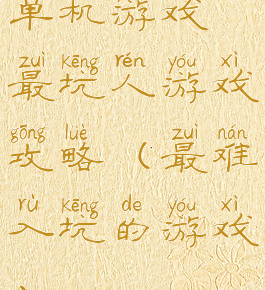 单机游戏
zuì kēng rén yóu xì
最坑人游戏
gōng lüè zuì nán
攻略（最难
rù kēng de yóu xì
入坑的游戏